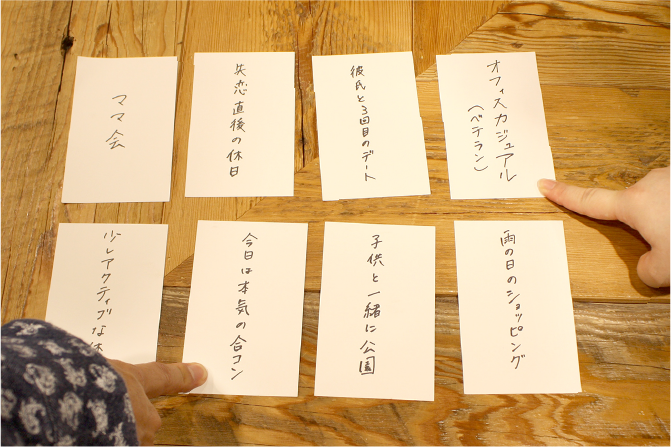 ママ会
失恋直後の休日
彼氏と3回目のデート
オフィスカジュアル
(ベテラン)
少しアクティブな休
今日は本気の合コン
子供と一緒に公園
雨の日のショッピング